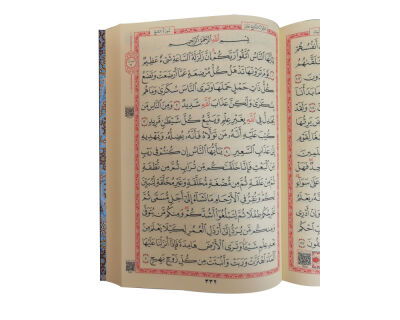 سورة الحج
بِسْمِ اللَّهِ الرَّحْمَٰنِ الرَّحِيمِ
يَٰٓأَيُّهَا ٱلنَّاسُ ٱتَّقُوا۟ رَبَّكُمْ إِنَّ زَلْزَلَةَ ٱلسَّاعَةِ شَىْءٌ عَظِيمٌ
١ يَوْمَ تَرَوْنَهَا تَذْهَلُ كُلُّ مُرْضِعَةٍ عَمَّآ أَرْضَعَتْ وَتَضَعُ
كُلُّ ذَاتِ حَمْلٍ حَمْلَهَا وَتَرَى ٱلنَّاسَ سُكَٰرَىٰ وَمَا هُم
بِسُكَٰرَىٰ وَلَٰكِنَّ عَذَابَ ٱللَّهِ شَدِيدٌ ٢ وَمِنَ ٱلنَّاسِ مَن
يُجَٰدِلُ فِى ٱللَّهِ بِغَيْرِ عِلْمٍ وَيَتَّبِعُ كُلَّ شَيْطَٰنٍ مَّرِيدٍ ٣
كُتِبَ عَلَيْهِ أَنَّهُۥ مَن تَوَلَّاهُ فَأَنَّهُۥ يُضِلُّهُۥ وَيَهْدِيهِ
إِلَىٰ عَذَابِ ٱلسَّعِيرِ ٤ يَٰٓأَيُّهَا ٱلنَّاسُ إِن كُنتُمْ فِى رَيْبٍ
مِّنَ ٱلْبَعْثِ فَإِنَّا خَلَقْنَٰكُم مِّن تُرَابٍ ثُمَّ مِن نُّطْفَةٍ
ثُمَّ مِنْ عَلَقَةٍ ثُمَّ مِن مُّضْغَةٍ مُّخَلَّقَةٍ وَغَيْرِ مُخَلَّقَةٍ لِّنُبَيِّنَ
لَكُمْ وَنُقِرُّ فِى ٱلْأَرْحَامِ مَا نَشَآءُ إِلَىٰٓ أَجَلٍ مُّسَمًّى ثُمَّ
نُخْرِجُكُمْ طِفْلًا ثُمَّ لِتَبْلُغُوٓا۟ أَشُدَّكُمْ وَمِنكُم مَّن يُتَوَفَّىٰ
وَمِنكُم مَّن يُرَدُّ إِلَىٰٓ أَرْذَلِ ٱلْعُمُرِ لِكَيْلَا يَعْلَمَ مِنۢ
بَعْدِ عِلْمٍ شَيْـًٔا وَتَرَى ٱلْأَرْضَ هَامِدَةً فَإِذَآ أَنزَلْنَا عَلَيْهَا
ٱلْمَآءَ ٱهْتَزَّتْ وَرَبَتْ وَأَنۢبَتَتْ مِن كُلِّ زَوْجٍۭ بَهِيجٍ ٥
٣٣٢